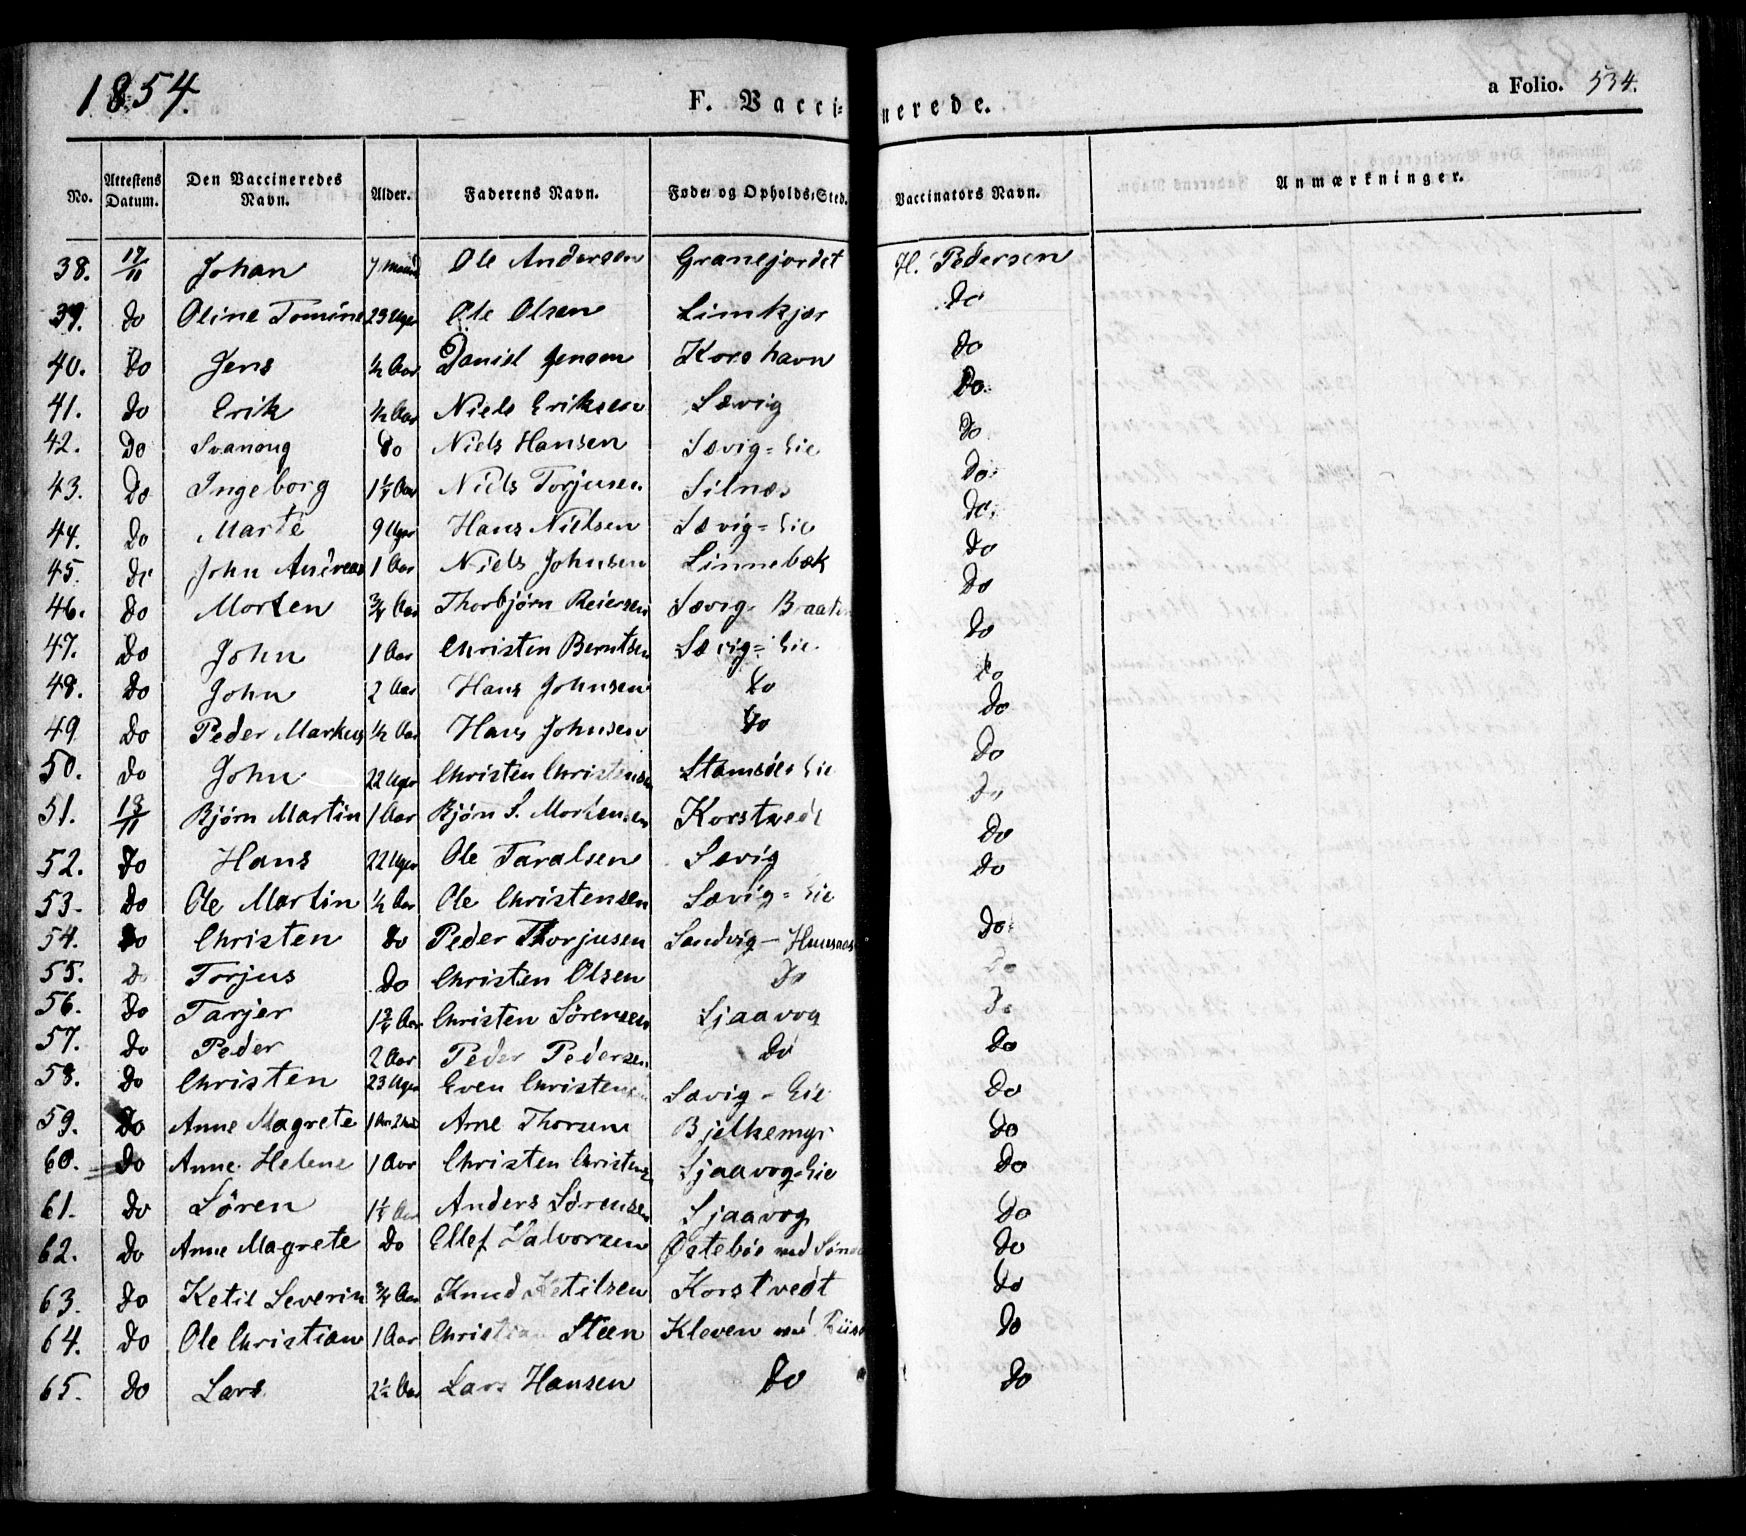 1854.
F. Vaccinerede.
a Folio. 534.
No. Attestens Datum. Den Vaccineredes Navn. Alder. Faderens Navn. Føde- og Opholds-Sted. Vaccinators Navn. Anmærkninger.
38. 17/11 Johan 7 Ole Andersen Granejordet H. Pedersen
39. do Oline Tomine 23 Uger Ole Olsen Limkjær do
40. Do Jens ½ Aar Daniel Jensen Korshavn do
41. do Erik ½ Aar Niels Eriksen Sævig Do.
42. Do Svanaug do Niels Hansen Sævig=Eie do
43. Do Ingeborg 1¼ Aar Niels Torjusen Silnæs Do.
44. Do Marte 9 Uger Hans Nielsen Sævig=Eie do.
45. do John Andreas 1 Aar Niels Johnsen Linnebæk do
46. do Morten ¾ Aar Thorbjørn Reiersen Sævig- do
47. do John 1 Aar Christen Berntsen Sævig=Eie. do
48. Do John 2 Aar Hans Johnsen do do
49 Do Peder Markus ½ Aar Hans Johnsen do do
50. do John 22 Uger Christen Christensen Stamsøe=Eie do
51. 18/11 Bjørn Martin 1 Aar Bjørn S. Mortensen Korstvedt do
52. do Hans 22 Uger Ole Taralsen Sævig do
53. do Ole Martin ½ Aar Ole Christensen Sævig=Eie do
54. do Christen do Peder Thorjusen Sandvig- Do
55. do Torjus do Christen Olsen do do
56. do Tarjer 1¾ Aar Christen Sørensen Sjaavog do
57. do Peder 2 Aar Peder Pedersen do do
58. do Christen 23 Uger Even Christensen Sævig-Eie do
59. do Anne Magrete Arne Thorsen Bjelkemyr do
60. do Anne Helene 1 Aar Christen Christens Sjaavog=Eie do
61. do Sören 1¼ Aar Anders Sørensen Sjaavog Do
62. do Anne Magrete do Ellef Halvorsen Østebøe ved do
63. do Ketil Severin ¾ Aar Knud Ketilsen Korstvedt do
64. do Ole Christian 1 Aar Christian Steen Kleven ved do
65. do Lars 2½ Aar Lars Hansen do do